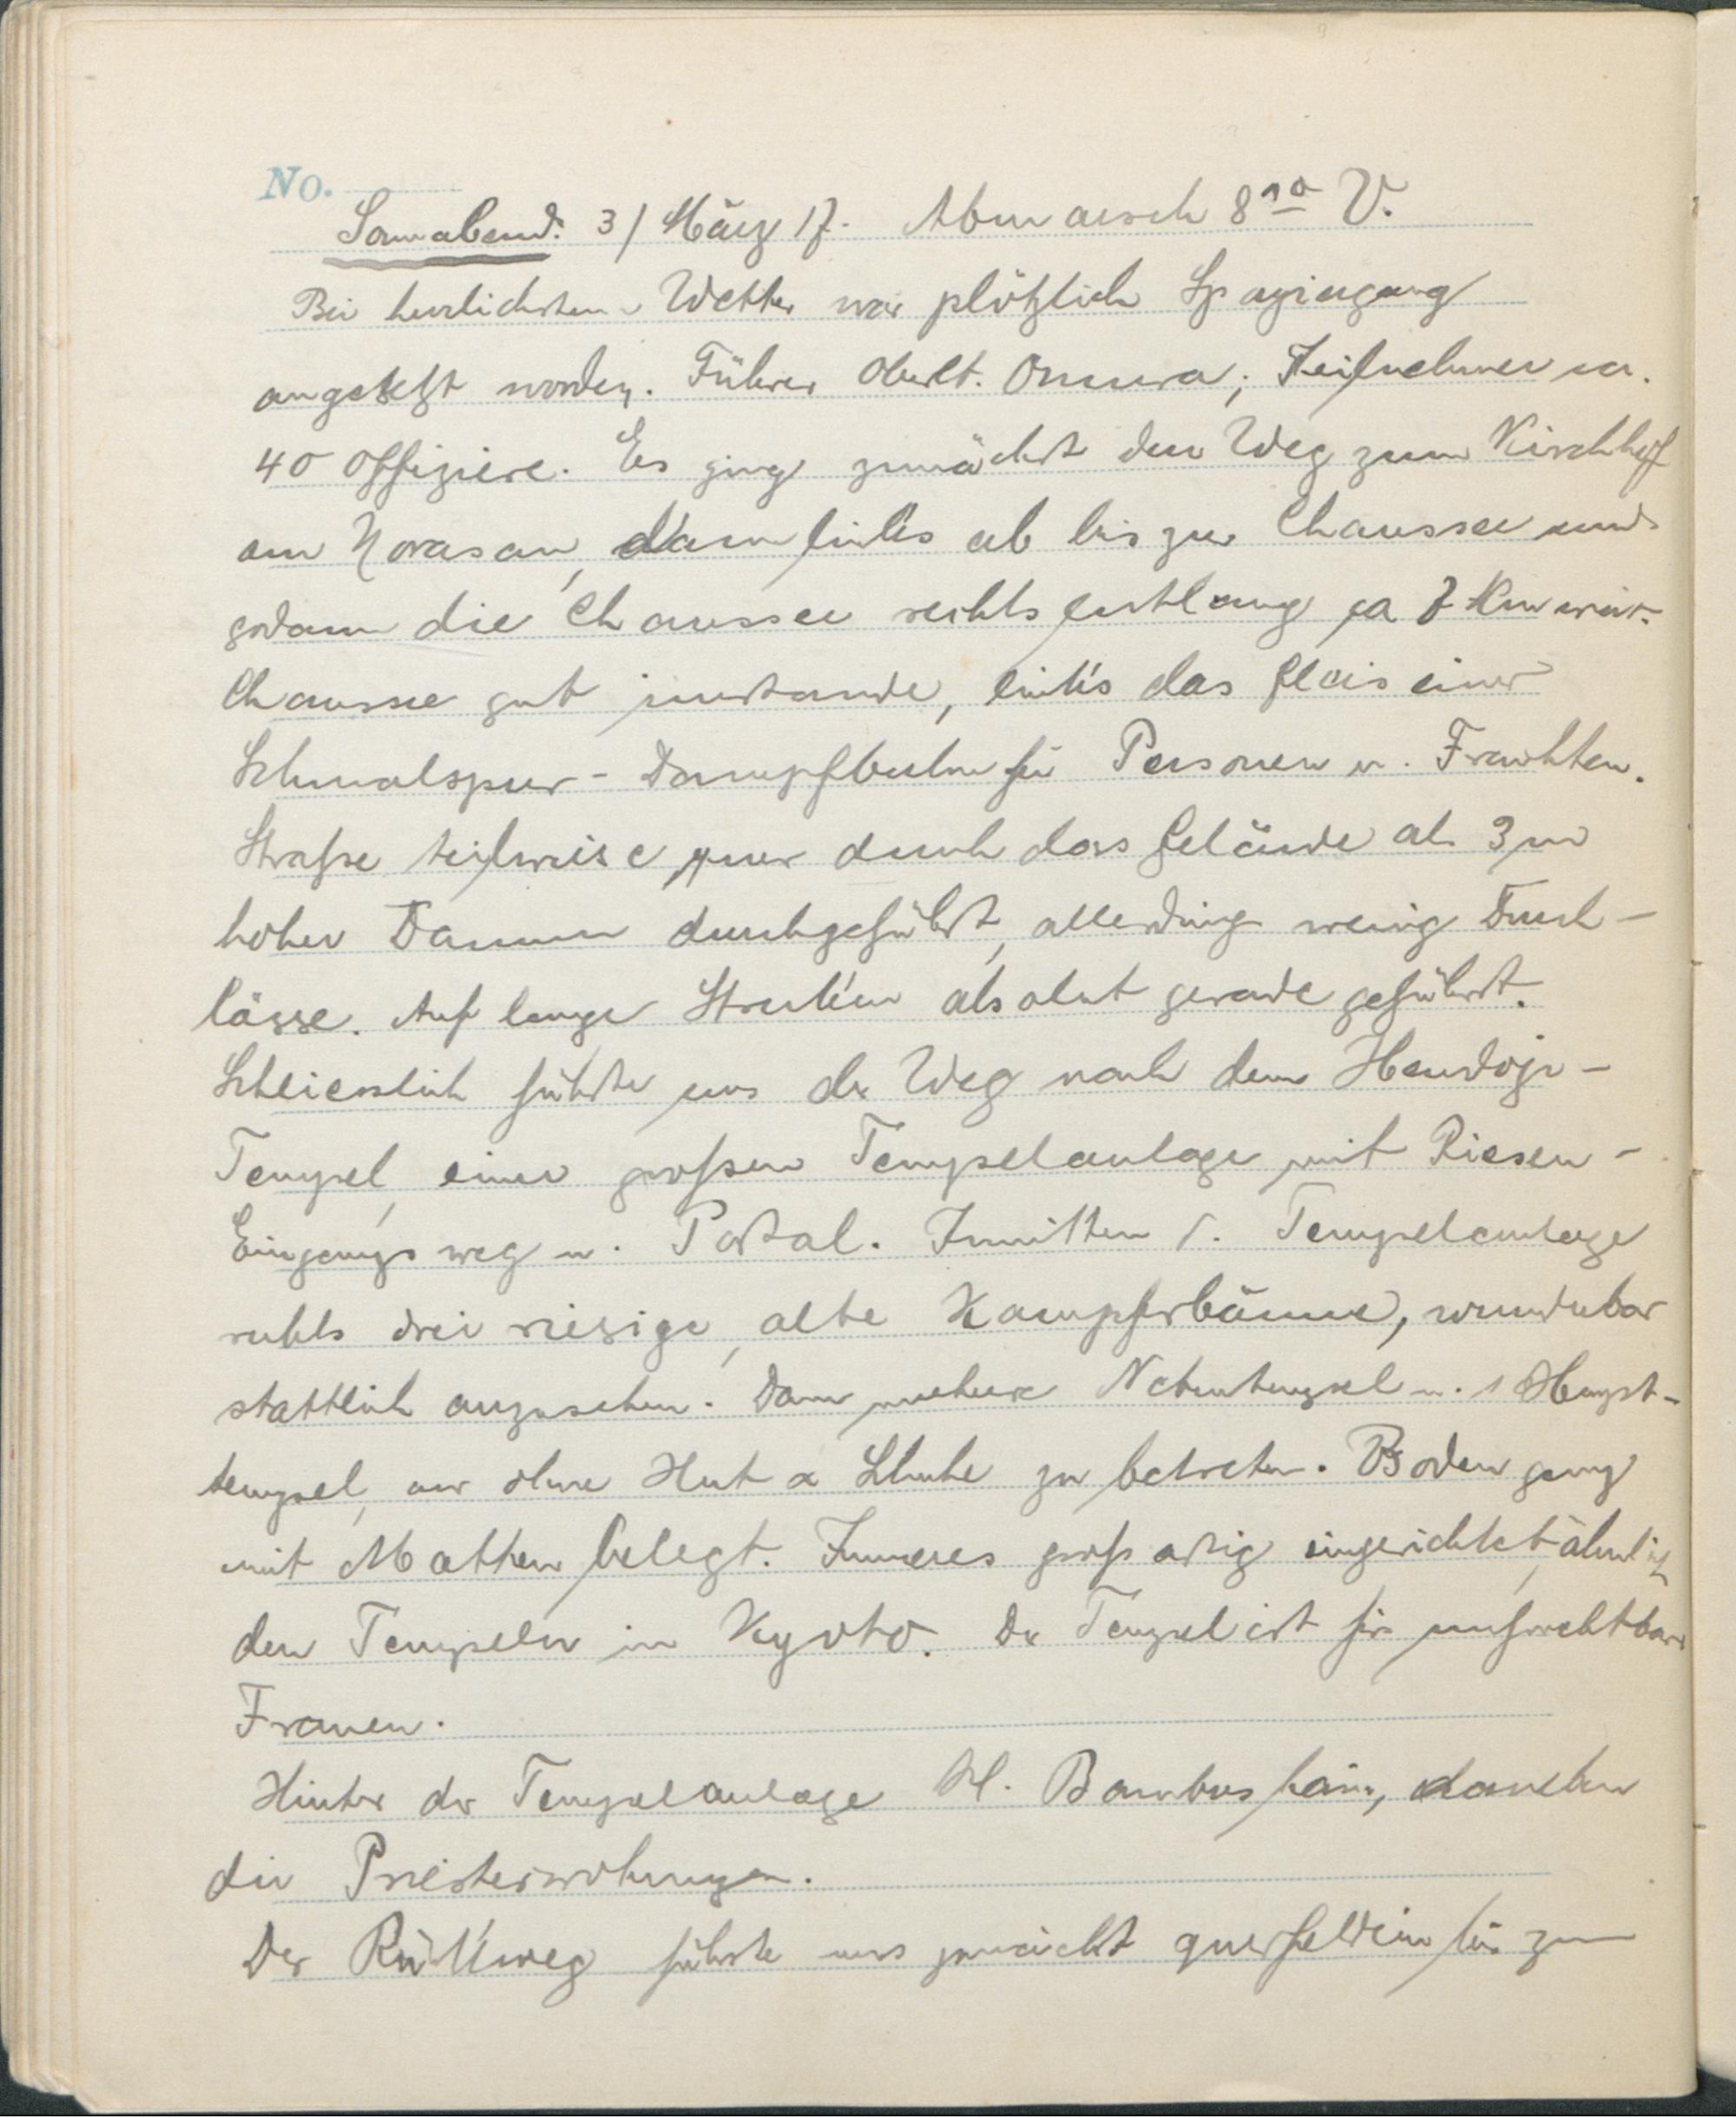 No.
Sonnabend. 31 März 17. Abmarsch 8¹⁰ V.
Bei herrlichstem Wetter war plötzlich Spaziergang
angesetzt worden. Führer Oberlt. Omura; Teilnehmer ca.
40 Offiziere. Es ging zunächst den Weg zum Kirchhof
am Norasan, dann links ab bis zur Chaussee und
sodann die Chaussee rechts entlang ca 7 Km weit.
Chaussee gut imstande, links das Gleis einer
Schmalspur-Dampfbahn für Personen u. Frachten.
Straße teilweise quer durch das Gelände als 3 m
hoher Damm durchgeführt, allerdings wenig Durch-
lässe. Auf lange Strecken absolut gerade geführt.
Schliesslich führte uns der Weg nach dem
Tempel, einer großen Tempelanlage mit Riesen-
Eingangsweg u. Portal. Inmitten d. Tempelanlage
rechts drei riesige, alte Kampferbäume, wunderbar
stattlich anzusehen. Dann mehrere Nebentempel u. 1 Haupt-
tempel, nur ohne Hut & Schuhe zu betreten. Boden ganz
mit Matten belegt. Inneres großartig eingerichtet, ähnlich
den Tempeln in Kyoto. Der Tempel ist für unfruchtbare
Frauen.
Hinter der Tempelanlage kl. Bambushain, daneben
die Priesterwohnungen.
Der Rückweg führte uns zunächst querfeldein bis zum